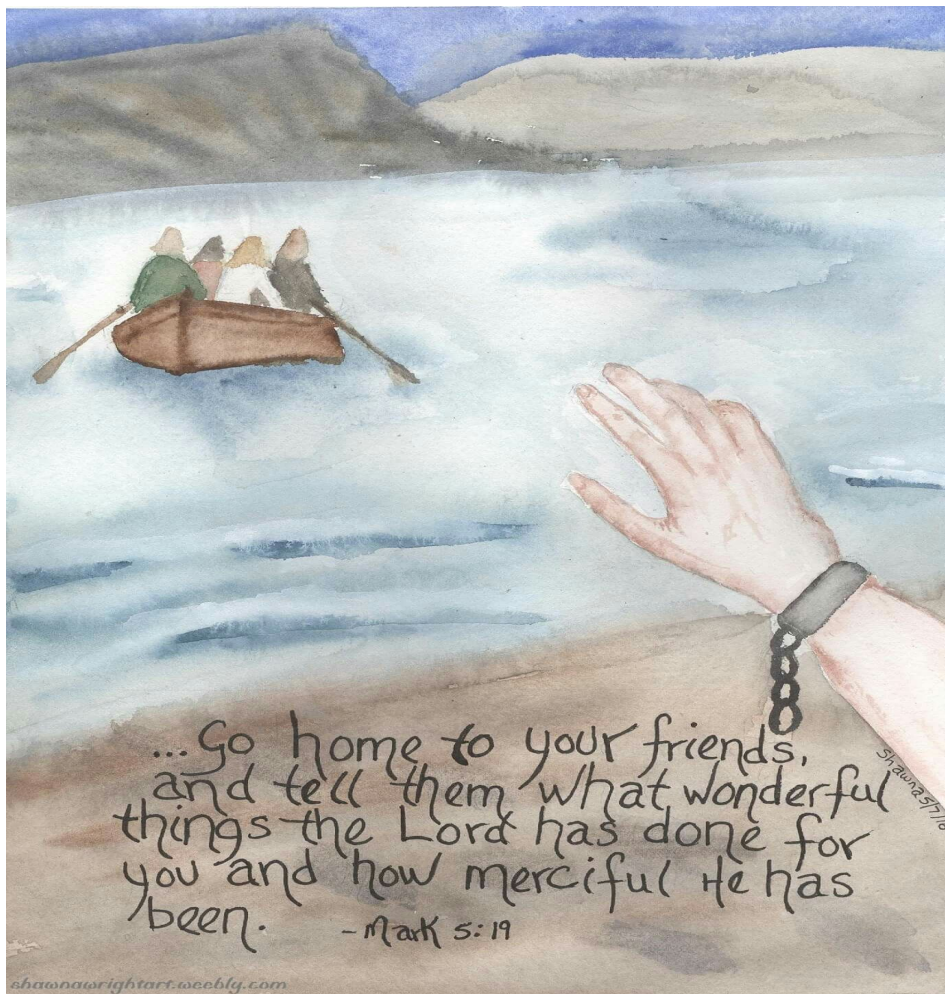 ...Go home to your friends,
and tell them what wonderful
things the Lord has done for
you and how merciful He has
been. -Mark 5:19
shawna 5/7/18
shawnawrightart.weebly.com